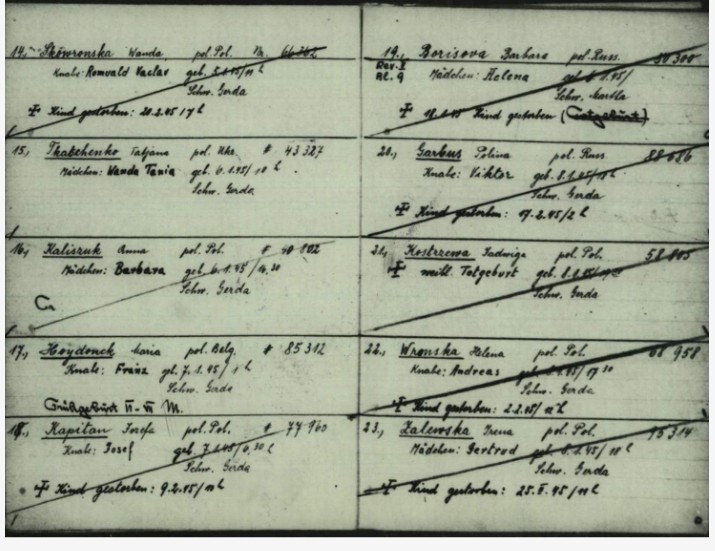 14., Skowronska Wanda pol. Pol. Nr. 66302
Knabe: Romvald Vaclav geb. 5.1.45/11 h
Schw. Gerda
Kind gestorben: 20.2.45 / 7 h
15., Tkatchenko Tatjana pol. Ukr. # 43 327
Mädchen: Wanda Tania geb. 6.1.45/10 h
Schw. Gerda
16., Kaliszuk Anna pol. Pol. # 40 802
Mädchen: Barbara geb. 6.1.45/14,30
Schw. Gerda
17., Hoydonck Maria pol. Belg. # 85 312
Knabe: Franz geb. 7.1.45/1 h
Schw. Gerda
Frühgeburt M.
18., Kapitan Jozefa pol. Pol. # 77 960
Knabe: Josef geb. 7.1.45/6,30 h
Schw. Gerda
Kind gestorben: 9.2.45/11 h
19., Borisova Barbara pol. Russ. 50 300
Rev. I
Bl. 9 Mädchen: Helena geb. 1.45/
Schw. Martha
1.45 Kind gestorben (Totgeburt)
20., Garbus Polina pol. Russ 88 686
Knabe: Viktor geb. 8.1.45/
Schw. Gerda
Kind gestorben: 17.2.45/2 h
21., Kostrzewa Jadwiga pol. Pol. 58 805
weibl. Totgeburt geb. 8.1.45/
Schw. Gerda
22., Wronska Helena pol. Pol. 958
Knabe: Andreas geb. 1.45/17 30
Schw. Gerda
Kind gestorben: 2.2.45/11 h
23., Zalewska Irena pol. Pol. 95 314
Mädchen: Gertrud geb. 1.45/18 h
Schw. Gerda
Kind gestorben: 25.II.45/11 h